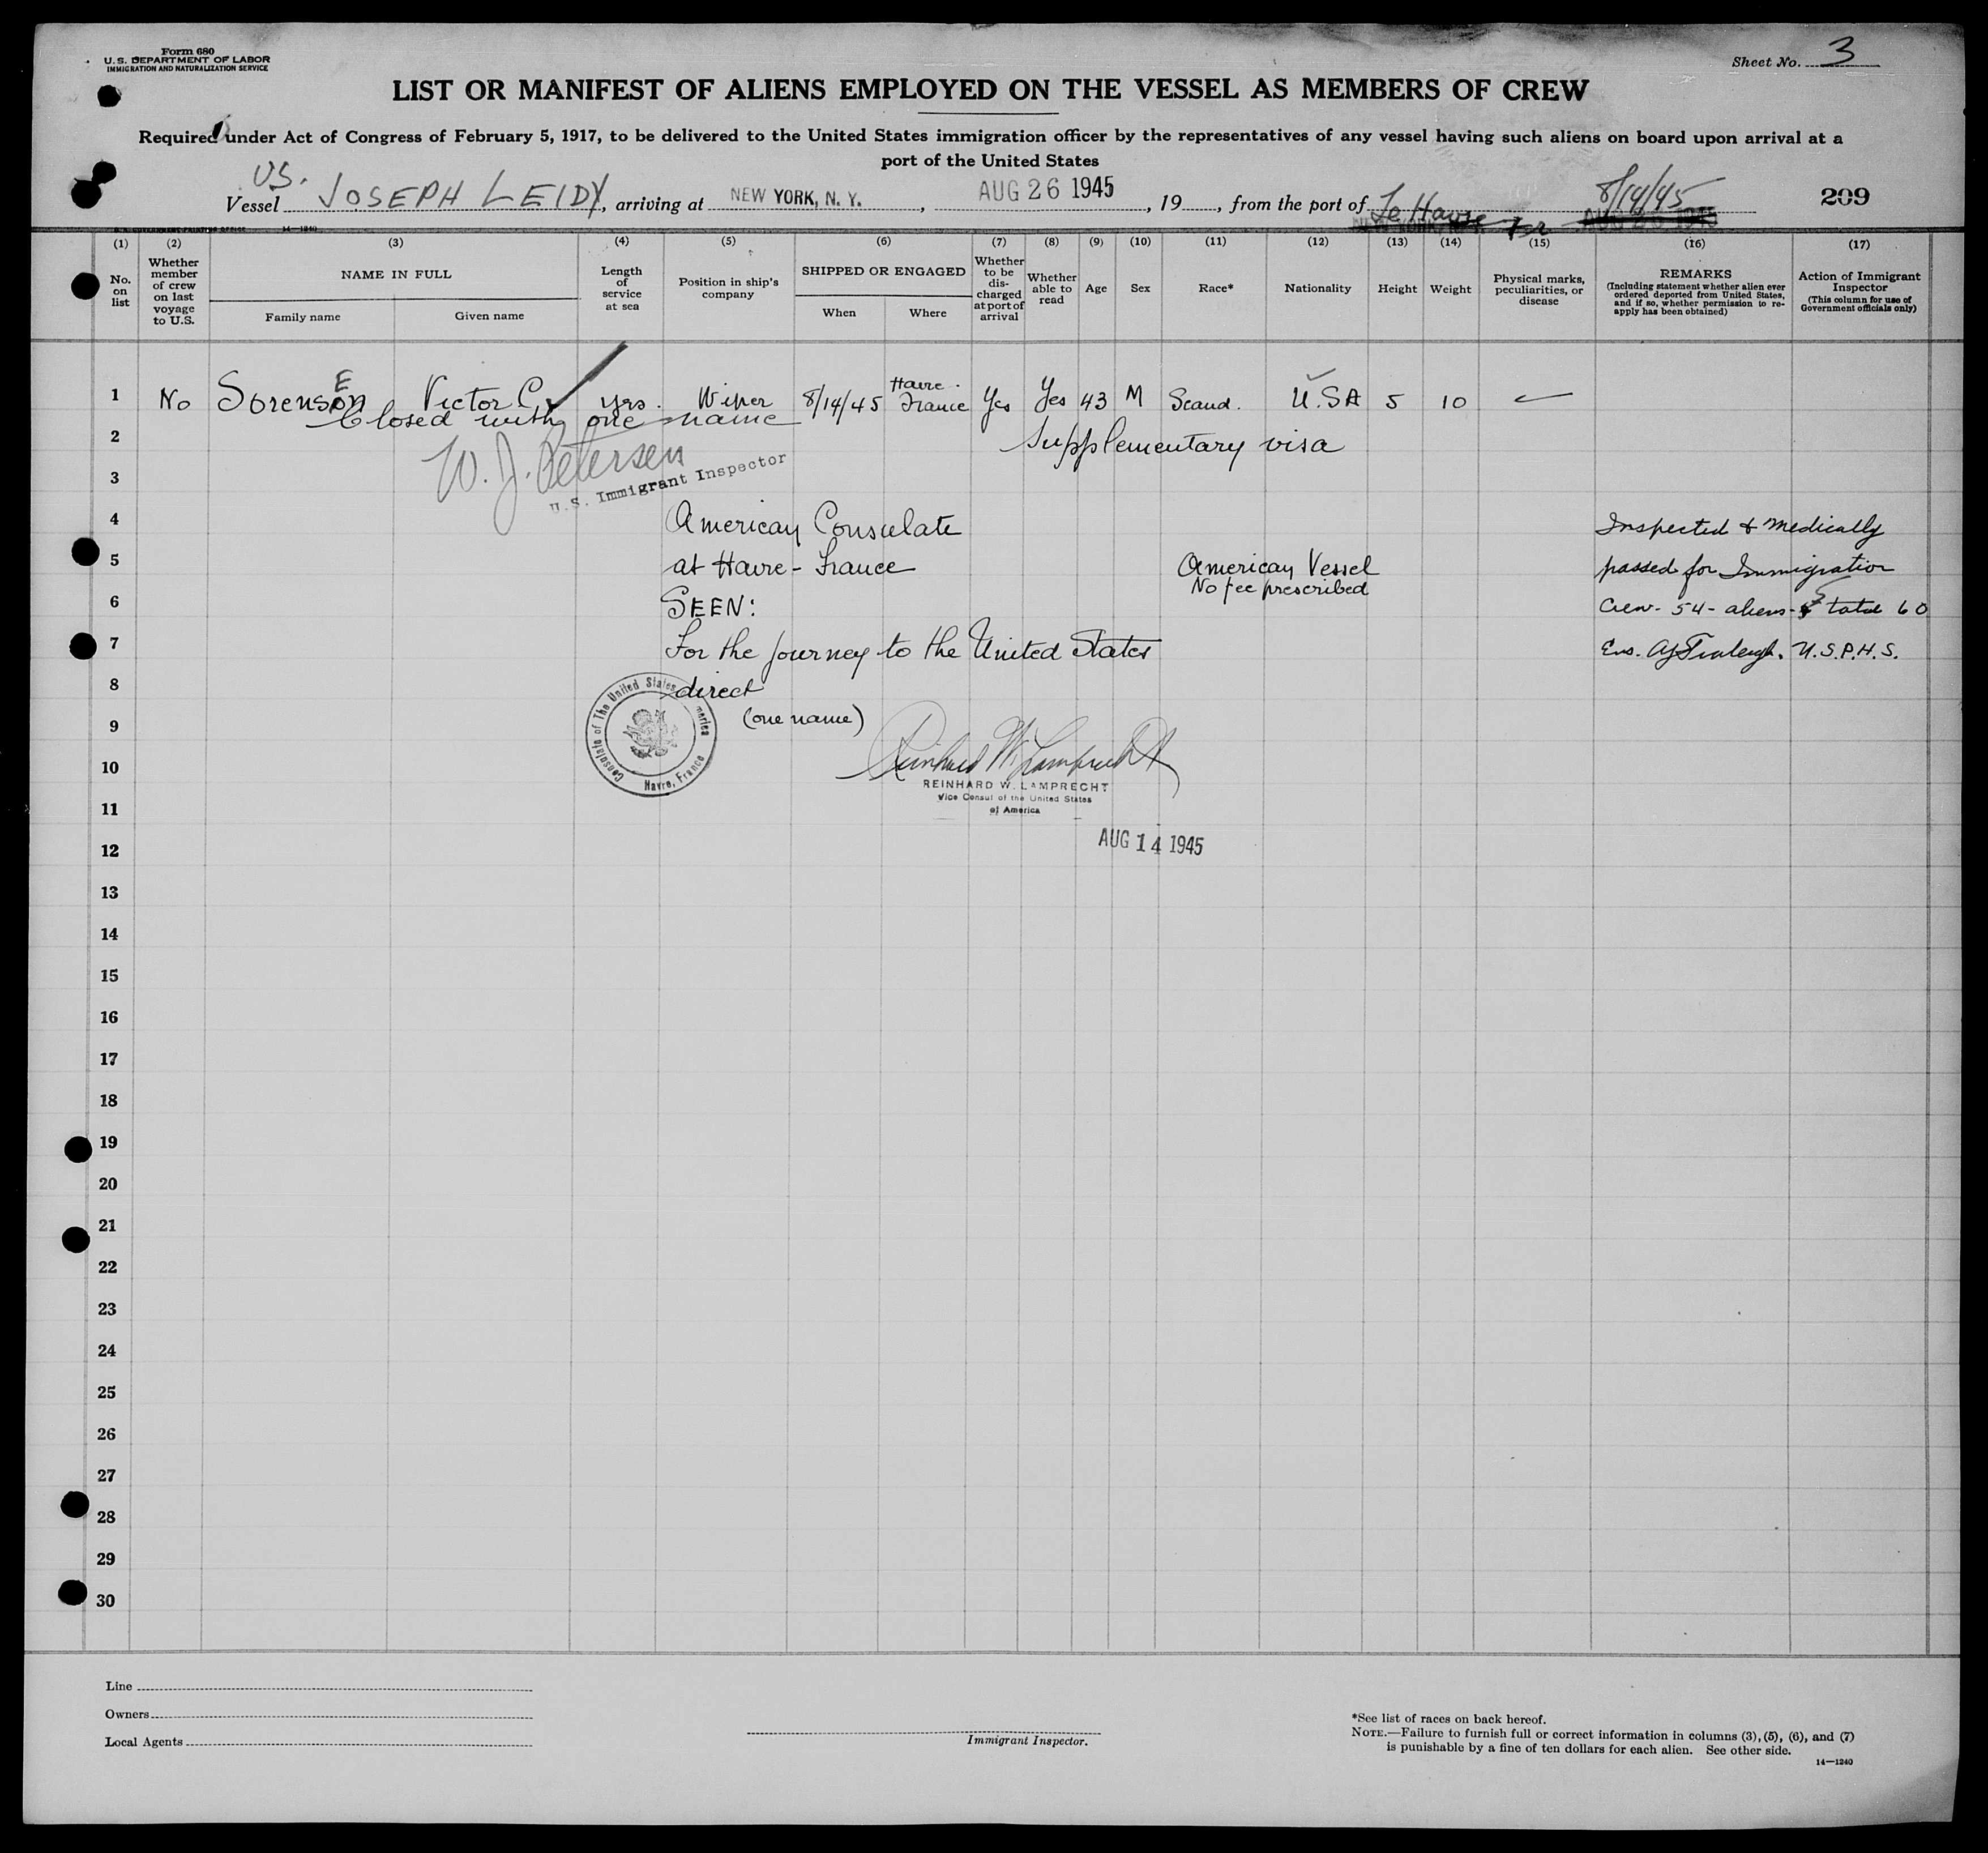 Form 680
U.S. DEPARTMENT OF LABOR
IMMIGRATION AND NATURALIZATION SERVICE
Sheet No. 3
LIST OR MANIFEST OF ALIENS EMPLOYED ON THE VESSEL AS MEMBERS OF CREW
Required under Act of Congress of February 5, 1917, to be delivered to the United States immigration officer by the representatives of any vessel having such aliens on board upon arrival at a
port of the United States
US.
Vessel JOSEPH LEIDY, arriving at NEW YORK, N. Y., AUG 26 1945, 19, from the port of Le Havre 8/14/45 209
14-1240
(1) (2) (3) (4) (5) (6) (7) (8) (9) (10) (11) (12) (13) (14) (15) (16) (17)
No. on list
Whether member of crew on last voyage to U.S.
NAME IN FULL
Family name
Given name
Length of service at sea
Position in ship's company
SHIPPED OR ENGAGED
When
Where
Whether to be dis-charged at port of arrival
Whether able to read
Age
Sex
Race*
Nationality
Height
Weight
Physical marks, peculiarities, or disease
REMARKS
(Including statement whether alien ever ordered deported from United States, and if so, whether permission to re-apply has been obtained)
Action of Immigrant Inspector
(This column for use of Government officials only)
1 No Sorensen Victor C. yrs. Wiper 8/14/45 Havre. France Yes Yes 43 M Scand. U.SA 5 10
E
Closed with one name
2 Supplementary visa
W. J. Petersen
U.S. Immigrant Inspector
3
4 American Consulate Inspected & medically
5 at Havre - France American Vessel passed for Immigration
No fee prescribed
6 SEEN: Crew - 54 - aliens - 5 total 60
7 For the journey to the United States Ens. U.S.P.H.S.
8 direct
9 (one name)
Consulate of The United States America
Havre, France
10
REINHARD W. LAMPRECHT
Vice Consul of the United States
of America
11
AUG 14 1945
12
13
14
15
16
17
18
19
20
21
22
23
24
25
26
27
28
29
30
Line
Owners
Local Agents
Immigrant Inspector.
*See list of races on back hereof.
NOTE.—Failure to furnish full or correct information in columns (3), (5), (6), and (7)
is punishable by a fine of ten dollars for each alien. See other side.
14—1240